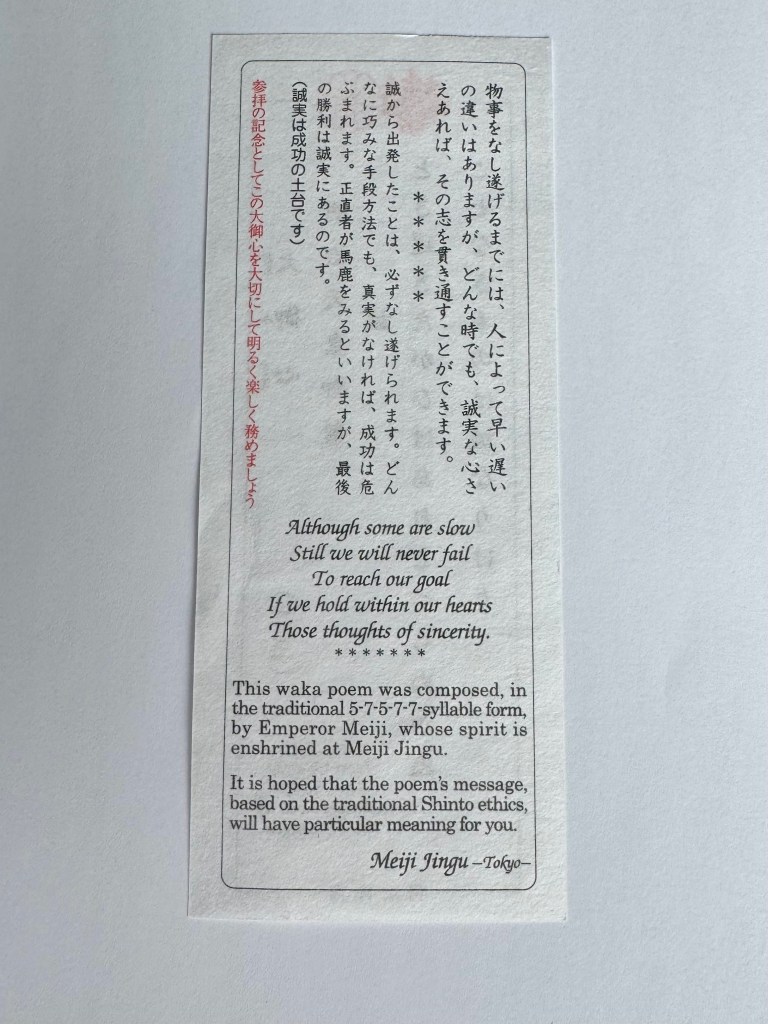 物事をなし遂げるまでには、人によって早い遅い
の違いはありますが、どんな時でも、誠実な心さ
えあれば、その志を貫き通すことができます。
＊＊＊＊＊
誠から出発したことは、必ずなし遂げられます。どん
なに巧みな手段方法でも、真実がなければ、成功は危
ぶまれます。正直者が馬鹿をみるといいますが、最後
の勝利は誠実にあるのです。
（誠実は成功の土台です）
参拝の記念としてこの大御心を大切にして明るく楽しく務めましょう
Although some are slow
Still we will never fail
To reach our goal
If we hold within our hearts
Those thoughts of sincerity.
*******
This waka poem was composed, in
the traditional 5-7-5-7-7-syllable form,
by Emperor Meiji, whose spirit is
enshrined at Meiji Jingu.
It is hoped that the poem's message,
based on the traditional Shinto ethics,
will have particular meaning for you.
Meiji Jingu –Tokyo–